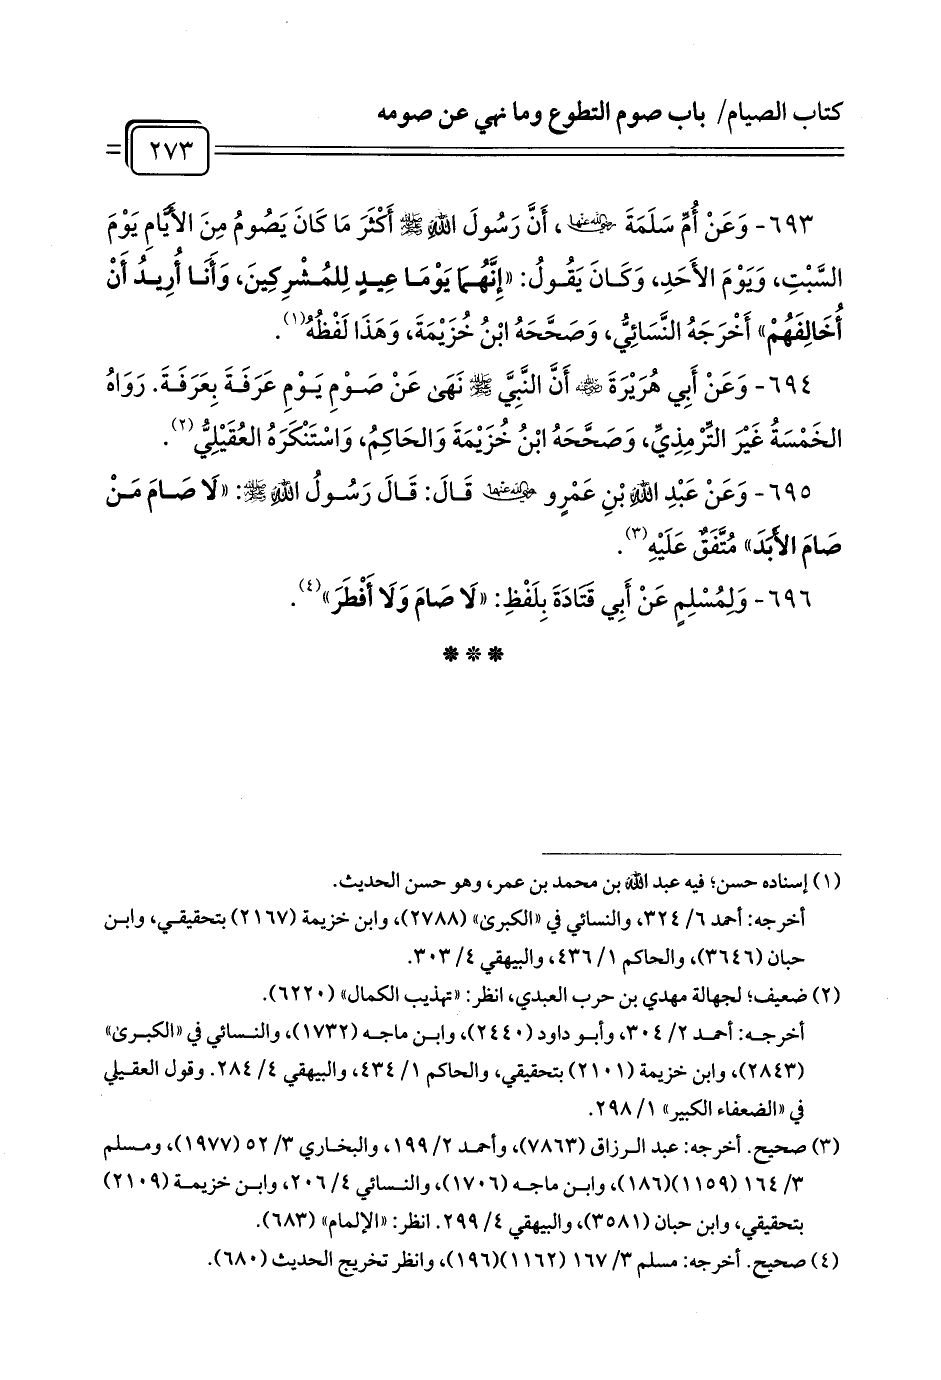 كتاب الصيام/ باب صوم التطوع وما نهي عن صومه
٢٧٣
٦٩٣- وَعَنْ أُمِّ سَلَمَةَ رضي الله عنها، أَنَّ رَسُولَ اللهِ ﷺ أَكْثَرَ مَا كَانَ يَصُومُ مِنَ الأَيَّامِ يَوْمَ
السَّبْتِ، وَيَوْمَ الأَحَدِ، وَكَانَ يَقُولُ: «إِنَّهُمَا يَوْمَا عِيدٍ لِلمُشْرِكِينَ، وَأَنَا أُرِيدُ أَنْ
أُخَالِفَهُمْ» أَخْرَجَهُ النَّسَائِيُّ، وَصَحَّحَهُ ابْنُ خُزَيْمَةَ، وَهَذَا لَفْظُهُ(١).
٦٩٤- وَعَنْ أَبِي هُرَيْرَةَ رضي الله عنه أَنَّ النَّبِيَّ ﷺ نَهَىٰ عَنْ صَوْمِ يَوْمِ عَرَفَةَ بِعَرَفَةَ. رَوَاهُ
الخَمْسَةُ غَيْرَ التِّرْمِذِيِّ، وَصَحَّحَهُ ابْنُ خُزَيْمَةَ وَالحَاكِمُ، وَاسْتَنْكَرَهُ العُقَيْلِيُّ(٢).
٦٩٥- وَعَنْ عَبْدِ اللهِ بْنِ عَمْرٍو رضي الله عنهما قَالَ: قَالَ رَسُولُ اللهِ ﷺ: «لَا صَامَ مَنْ
صَامَ الأَبَدَ» مُتَّفَقٌ عَلَيْهِ(٣).
٦٩٦- وَلِمُسْلِمٍ عَنْ أَبِي قَتَادَةَ بِلَفْظِ: «لَا صَامَ وَلَا أَفْطَرَ»(٤).
* * *
(١) إسناده حسن؛ فيه عبد الله بن محمد بن عمر، وهو حسن الحديث.
أخرجه: أحمد ٦/ ٣٢٤، والنسائي في «الكبرىٰ» (٢٧٨٨)، وابن خزيمة (٢١٦٧) بتحقيقي، وابن
حبان (٣٦٤٦)، والحاكم ١/ ٤٣٦، والبيهقي ٤/ ٣٠٣.
(٢) ضعيف؛ لجهالة مهدي بن حرب العبدي، انظر: «تهذيب الكمال» (٦٢٢٠).
أخرجه: أحمد ٢/ ٣٠٤، وأبو داود (٢٤٤٠)، وابن ماجه (١٧٣٢)، والنسائي في «الكبرىٰ»
(٢٨٤٣)، وابن خزيمة (٢١٠١) بتحقيقي، والحاكم ١/ ٤٣٤، والبيهقي ٤/ ٢٨٤. وقول العقيلي
في «الضعفاء الكبير» ١/ ٢٩٨.
(٣) صحيح. أخرجه: عبد الرزاق (٧٨٦٣)، وأحمد ٢/ ١٩٩، والبخاري ٣/ ٥٢ (١٩٧٧)، ومسلم
٣/ ١٦٤ (١١٥٩)(١٨٦)، وابن ماجه (١٧٠٦)، والنسائي ٤/ ٢٠٦، وابن خزيمة (٢١٠٩)
بتحقيقي، وابن حبان (٣٥٨١)، والبيهقي ٤/ ٢٩٩. انظر: «الإلمام» (٦٨٣).
(٤) صحيح. أخرجه: مسلم ٣/ ١٦٧ (١١٦٢)(١٩٦)، وانظر تخريج الحديث (٦٨٠).